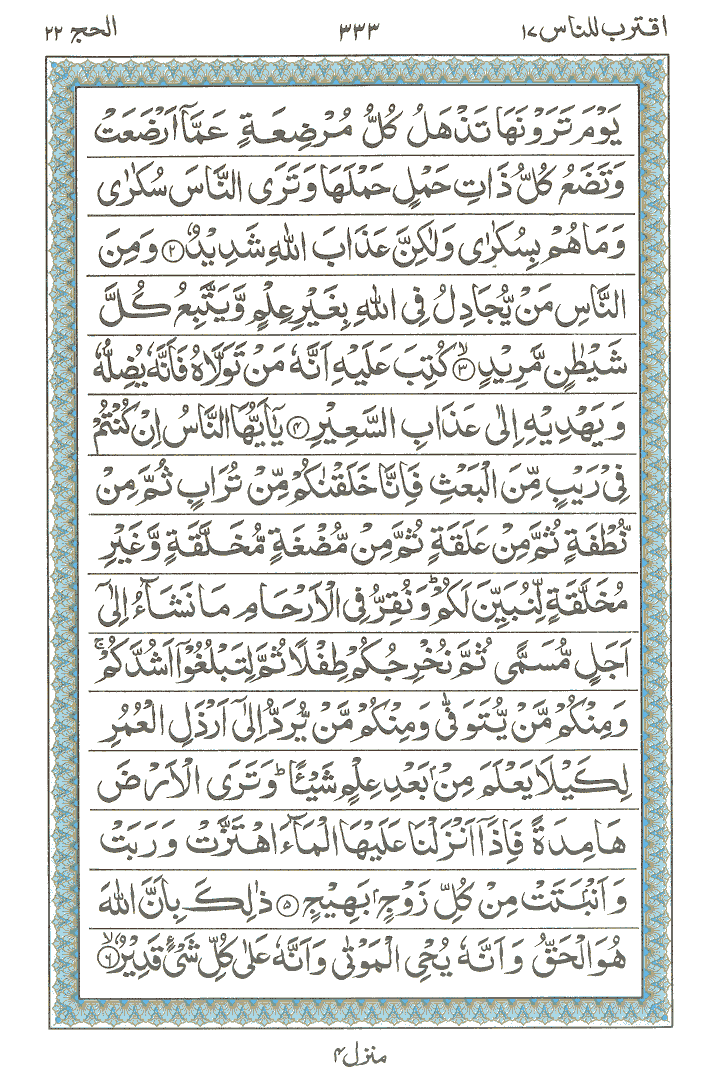 اقترب للناس ١٧ ٣٣٣ الحج ٢٢
يَوْمَ تَرَوْنَهَا تَذْهَلُ كُلُّ مُرْضِعَةٍ عَمَّآ اَرْضَعَتْ
وَتَضَعُ كُلُّ ذَاتِ حَمْلٍ حَمْلَهَا وَتَرَى النَّاسَ سُكٰرٰى
وَمَا هُمْ بِسُكٰرٰى وَلٰكِنَّ عَذَابَ اللّٰهِ شَدِيْدٌ ۝٢ وَمِنَ
النَّاسِ مَنْ يُّجَادِلُ فِى اللّٰهِ بِغَيْرِ عِلْمٍ وَّيَتَّبِعُ كُلَّ
شَيْطٰنٍ مَّرِيْدٍ ۙ۝٣ كُتِبَ عَلَيْهِ اَنَّهٗ مَنْ تَوَلَّاهُ فَاَنَّهٗ يُضِلُّهٗ
وَيَهْدِيْهِ اِلٰى عَذَابِ السَّعِيْرِ ۝٤ يٰٓاَيُّهَا النَّاسُ اِنْ كُنْتُمْ
فِىْ رَيْبٍ مِّنَ الْبَعْثِ فَاِنَّا خَلَقْنٰكُمْ مِّنْ تُرَابٍ ثُمَّ مِنْ
نُّطْفَةٍ ثُمَّ مِنْ عَلَقَةٍ ثُمَّ مِنْ مُّضْغَةٍ مُّخَلَّقَةٍ وَّغَيْرِ
مُخَلَّقَةٍ لِّنُبَيِّنَ لَكُمْ ؕ وَنُقِرُّ فِى الْاَرْحَامِ مَا نَشَآءُ اِلٰٓى
اَجَلٍ مُّسَمًّى ثُمَّ نُخْرِجُكُمْ طِفْلًا ثُمَّ لِتَبْلُغُوْٓا اَشُدَّكُمْ ۚ
وَمِنْكُمْ مَّنْ يُّتَوَفّٰى وَمِنْكُمْ مَّنْ يُّرَدُّ اِلٰٓى اَرْذَلِ الْعُمُرِ
لِكَيْلَا يَعْلَمَ مِنْۢ بَعْدِ عِلْمٍ شَيْـًٔا ؕ وَتَرَى الْاَرْضَ
هَامِدَةً فَاِذَآ اَنْزَلْنَا عَلَيْهَا الْمَآءَ اهْتَزَّتْ وَرَبَتْ
وَاَنْۢبَتَتْ مِنْ كُلِّ زَوْجٍۢ بَهِيْجٍ ۝٥ ذٰلِكَ بِاَنَّ اللّٰهَ
هُوَ الْحَقُّ وَاَنَّهٗ يُحْىِ الْمَوْتٰى وَاَنَّهٗ عَلٰى كُلِّ شَىْءٍ قَدِيْرٌ ۙ۝٦
منزل ٤